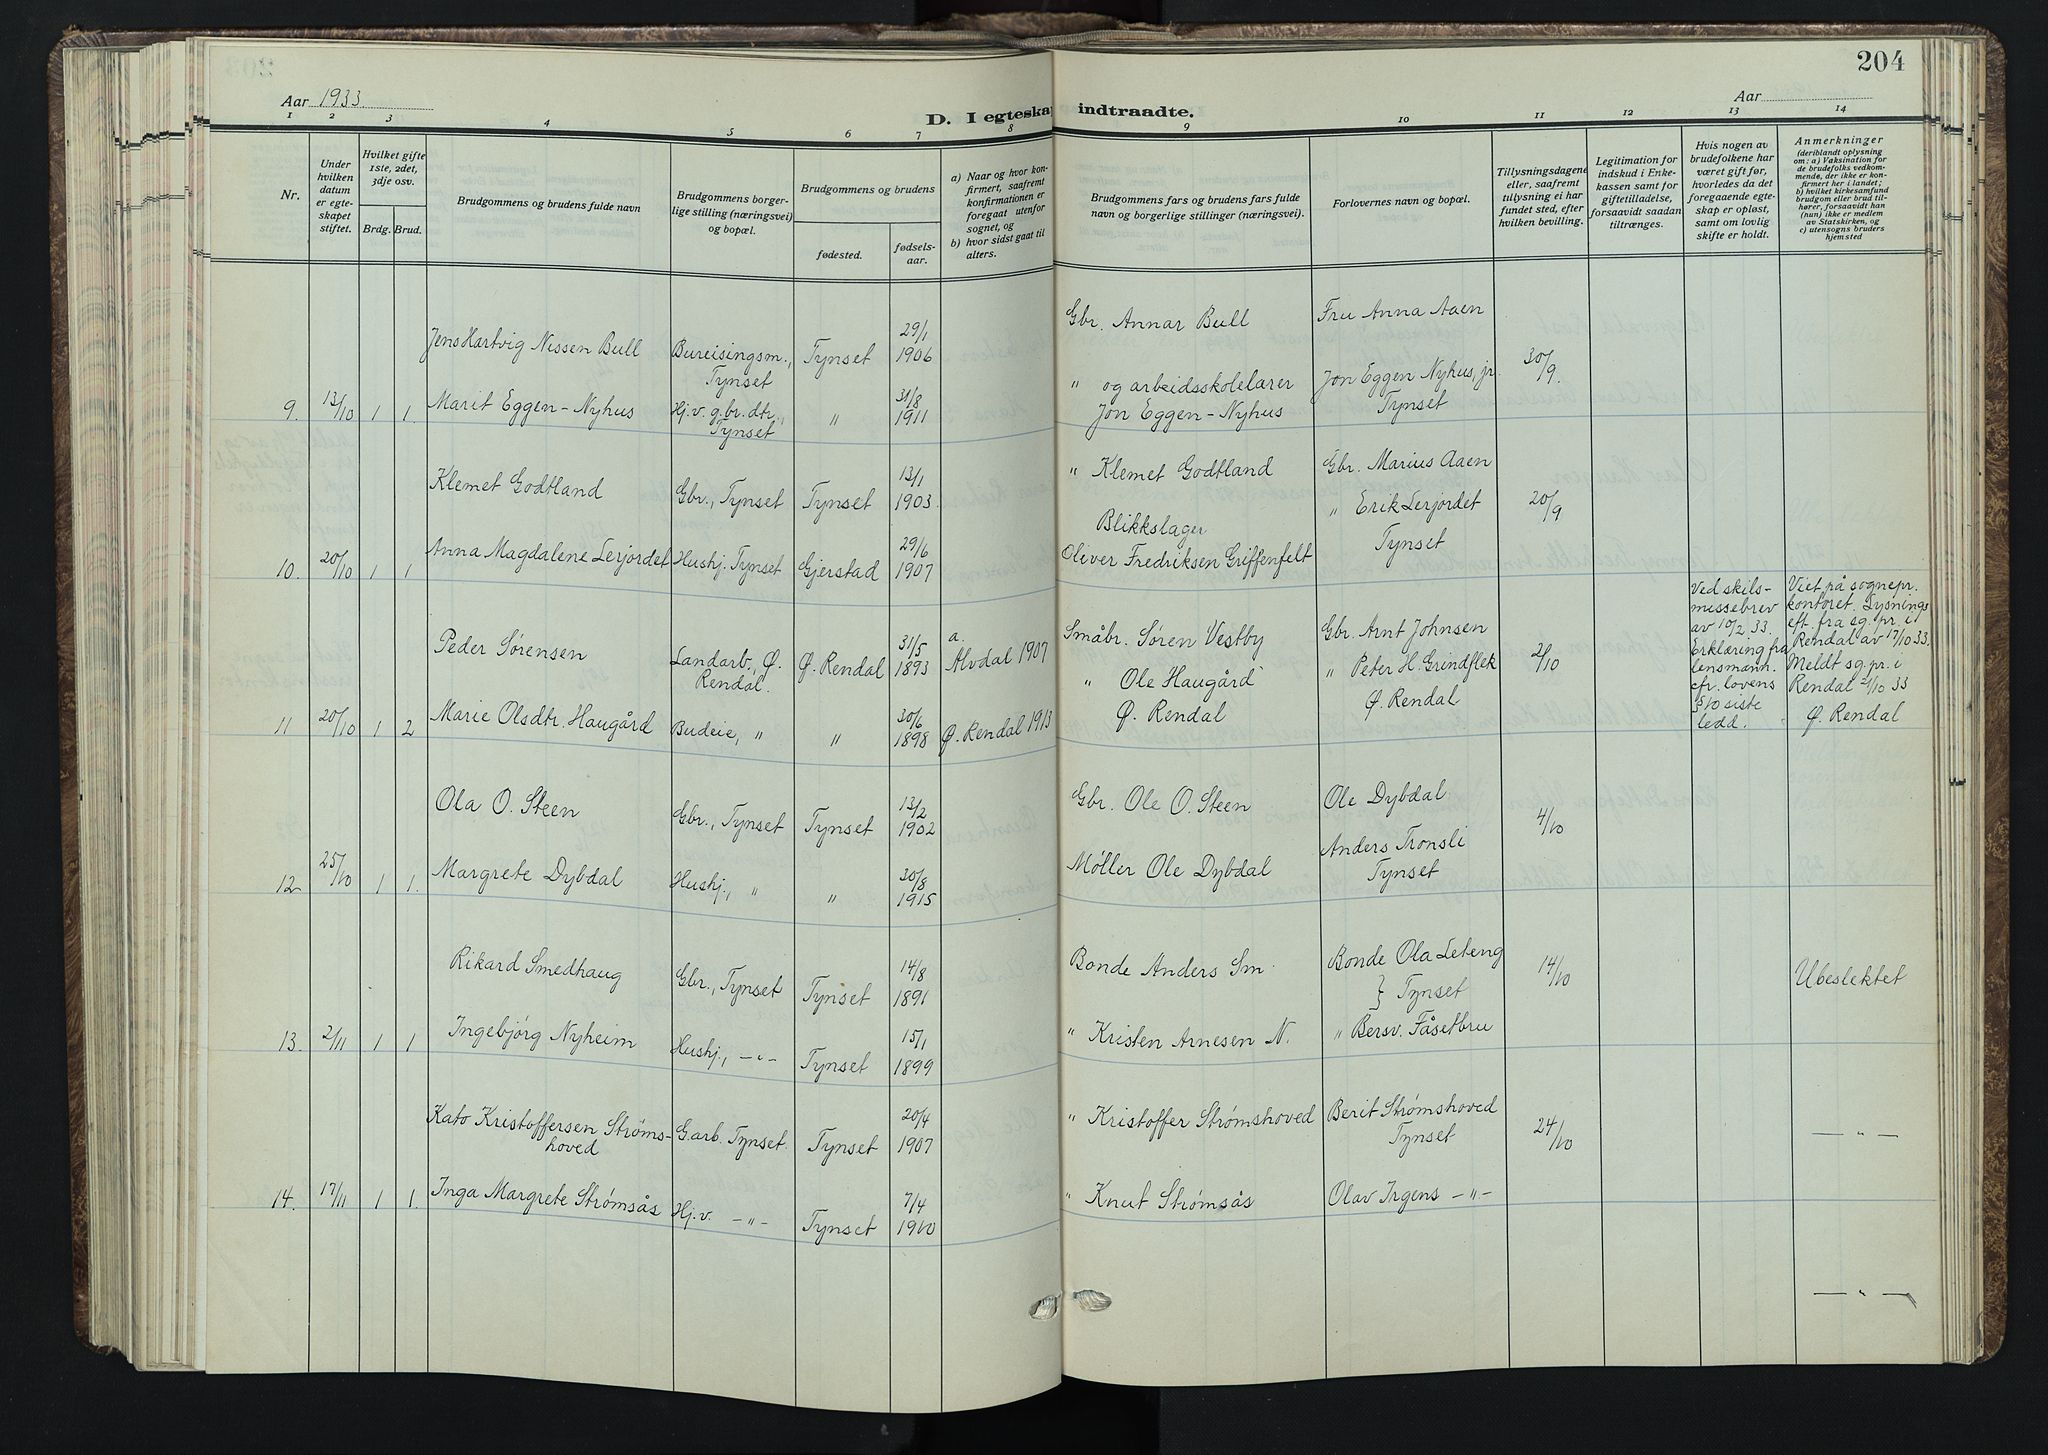 204
Aar 1933.
D. I egteskap indtraadte.
Aar
1 2 3 4 5 6 7 8 9 10 11 12 13 14
Nr.
Under hvilken datum er egteskapet stiftet.
Hvilket gifte 1ste, 2det, 3dje osv.
Brdg. Brud.
Brudgommens og brudens fulde navn
Brudgommens borgerlige stilling (næringsvei) og bopæl.
Brudgommens og brudens
fødested.
fødselsaar.
a) Naar og hvor konfirmert, saafremt konfirmationen er foregaat utenfor sognet, og
b) hvor sidst gaat til alters.
Brudgommens fars og brudens fars fulde navn og borgerlige stillinger (næringsvei).
Forlovernes navn og bopæl.
Tillysningsdagene eller, saafremt tillysning ei har fundet sted, efter hvilken bevilling.
Legitimation for indskud i Enkekassen samt for giftetilladelse, forsaavidt saadan tiltrænges.
Hvis nogen av brudefolkene har været gift før, hvorledes da det foregaaende egteskap er opløst, samt om lovlig skifte er holdt.
Anmerkninger
(deriblandt oplysning om: a) Vaksination for de brudefolks vedkommende, der ikke er konfirmert her i landet; b) hvilket kirkesamfund brudgom eller brud tilhører, forsaavidt han (hun) ikke er medlem av Statskirken, og c) utensogns bruders hjemsted
Jens Hartvig Nissen Bull Bureisingsm., Tynset Tynset 29/1 1906 Gbr. Annar Bull Fru Anna Aaen
9. 13/10 1 1. Marit Eggen-Nyhus Hj.v. g.br.dtr., Tynset " 31/8 1911 " og arbeidsskolelærer Jon Eggen-Nyhus Jon Eggen Nyhus, jr. Tynset 30/9.
Klemet Godtland Gbr., Tynset Tynset 13/1 1903 " Klemet Godtland Gbr. Marius Aaen
10. 20/10 1 1 Anna Magdalene Lerjordet Hushj. Tynset Gjerstad 29/6 1907 Blikkslager Oliver Fredriksen Griffenfelt " Erik Lerjordet Tynset 20/9
Peder Sørensen Landarb., Ø. Rendal. Ø. Rendal 31/5 1893 a. Alvdal 1907 Småbr. Søren Vestby Gbr. Arnt Johnsen 2/10
11 20/10 1 2 Marie Olsdtr. Haugård Budeie, " " 30/6 1898 Ø. Rendal 1913 " Ole Haugård Ø. Rendal " Peter H. Grindflek Ø. Rendal
Ved skilsmissebrev av 10/2 33 Erklæring fra lensmann. cfr. lovens § 10 siste ledd.
Viet på sognepr. kontoret. Lysnings eft. fra sg. pr. i Rendal av 17/10 33. Meldt sg. pr. i Rendal 21/10 33 Ø. Rendal
Ola O. Steen Gbr., Tynset Tynset 13/2 1902 Gbr. Ole O. Steen Ole Dybdal 4/10
12 25/10 1 1. Margrete Dybdal Hushj., " " 30/8 1915 Møller Ole Dybdal Anders Tronsli Tynset
Rikard Smedhaug Gbr., Tynset Tynset 14/8 1891 Bonde Anders Sm. Bonde Ola Leteng } Tynset 14/10 Ubeslektet
13. 2/11 1 1 Ingebjørg Nyheim Hushj., -"- Tynset 15/1 1899 " Kristen Arnesen N. " Bersv. Fåsetbru
Kato Kristoffersen Strømshoved G.arb. Tynset. Tynset 20/4 1907 " Kristoffer Strømshoved Berit Strømshoved Tynset 24/10 -"-
14. 17/11 1 1. Inga Margrete Strømsås Hj.v. -"- Tynset 7/4 1910 " Knut Strømsås Olav Irgens -"-
-"-